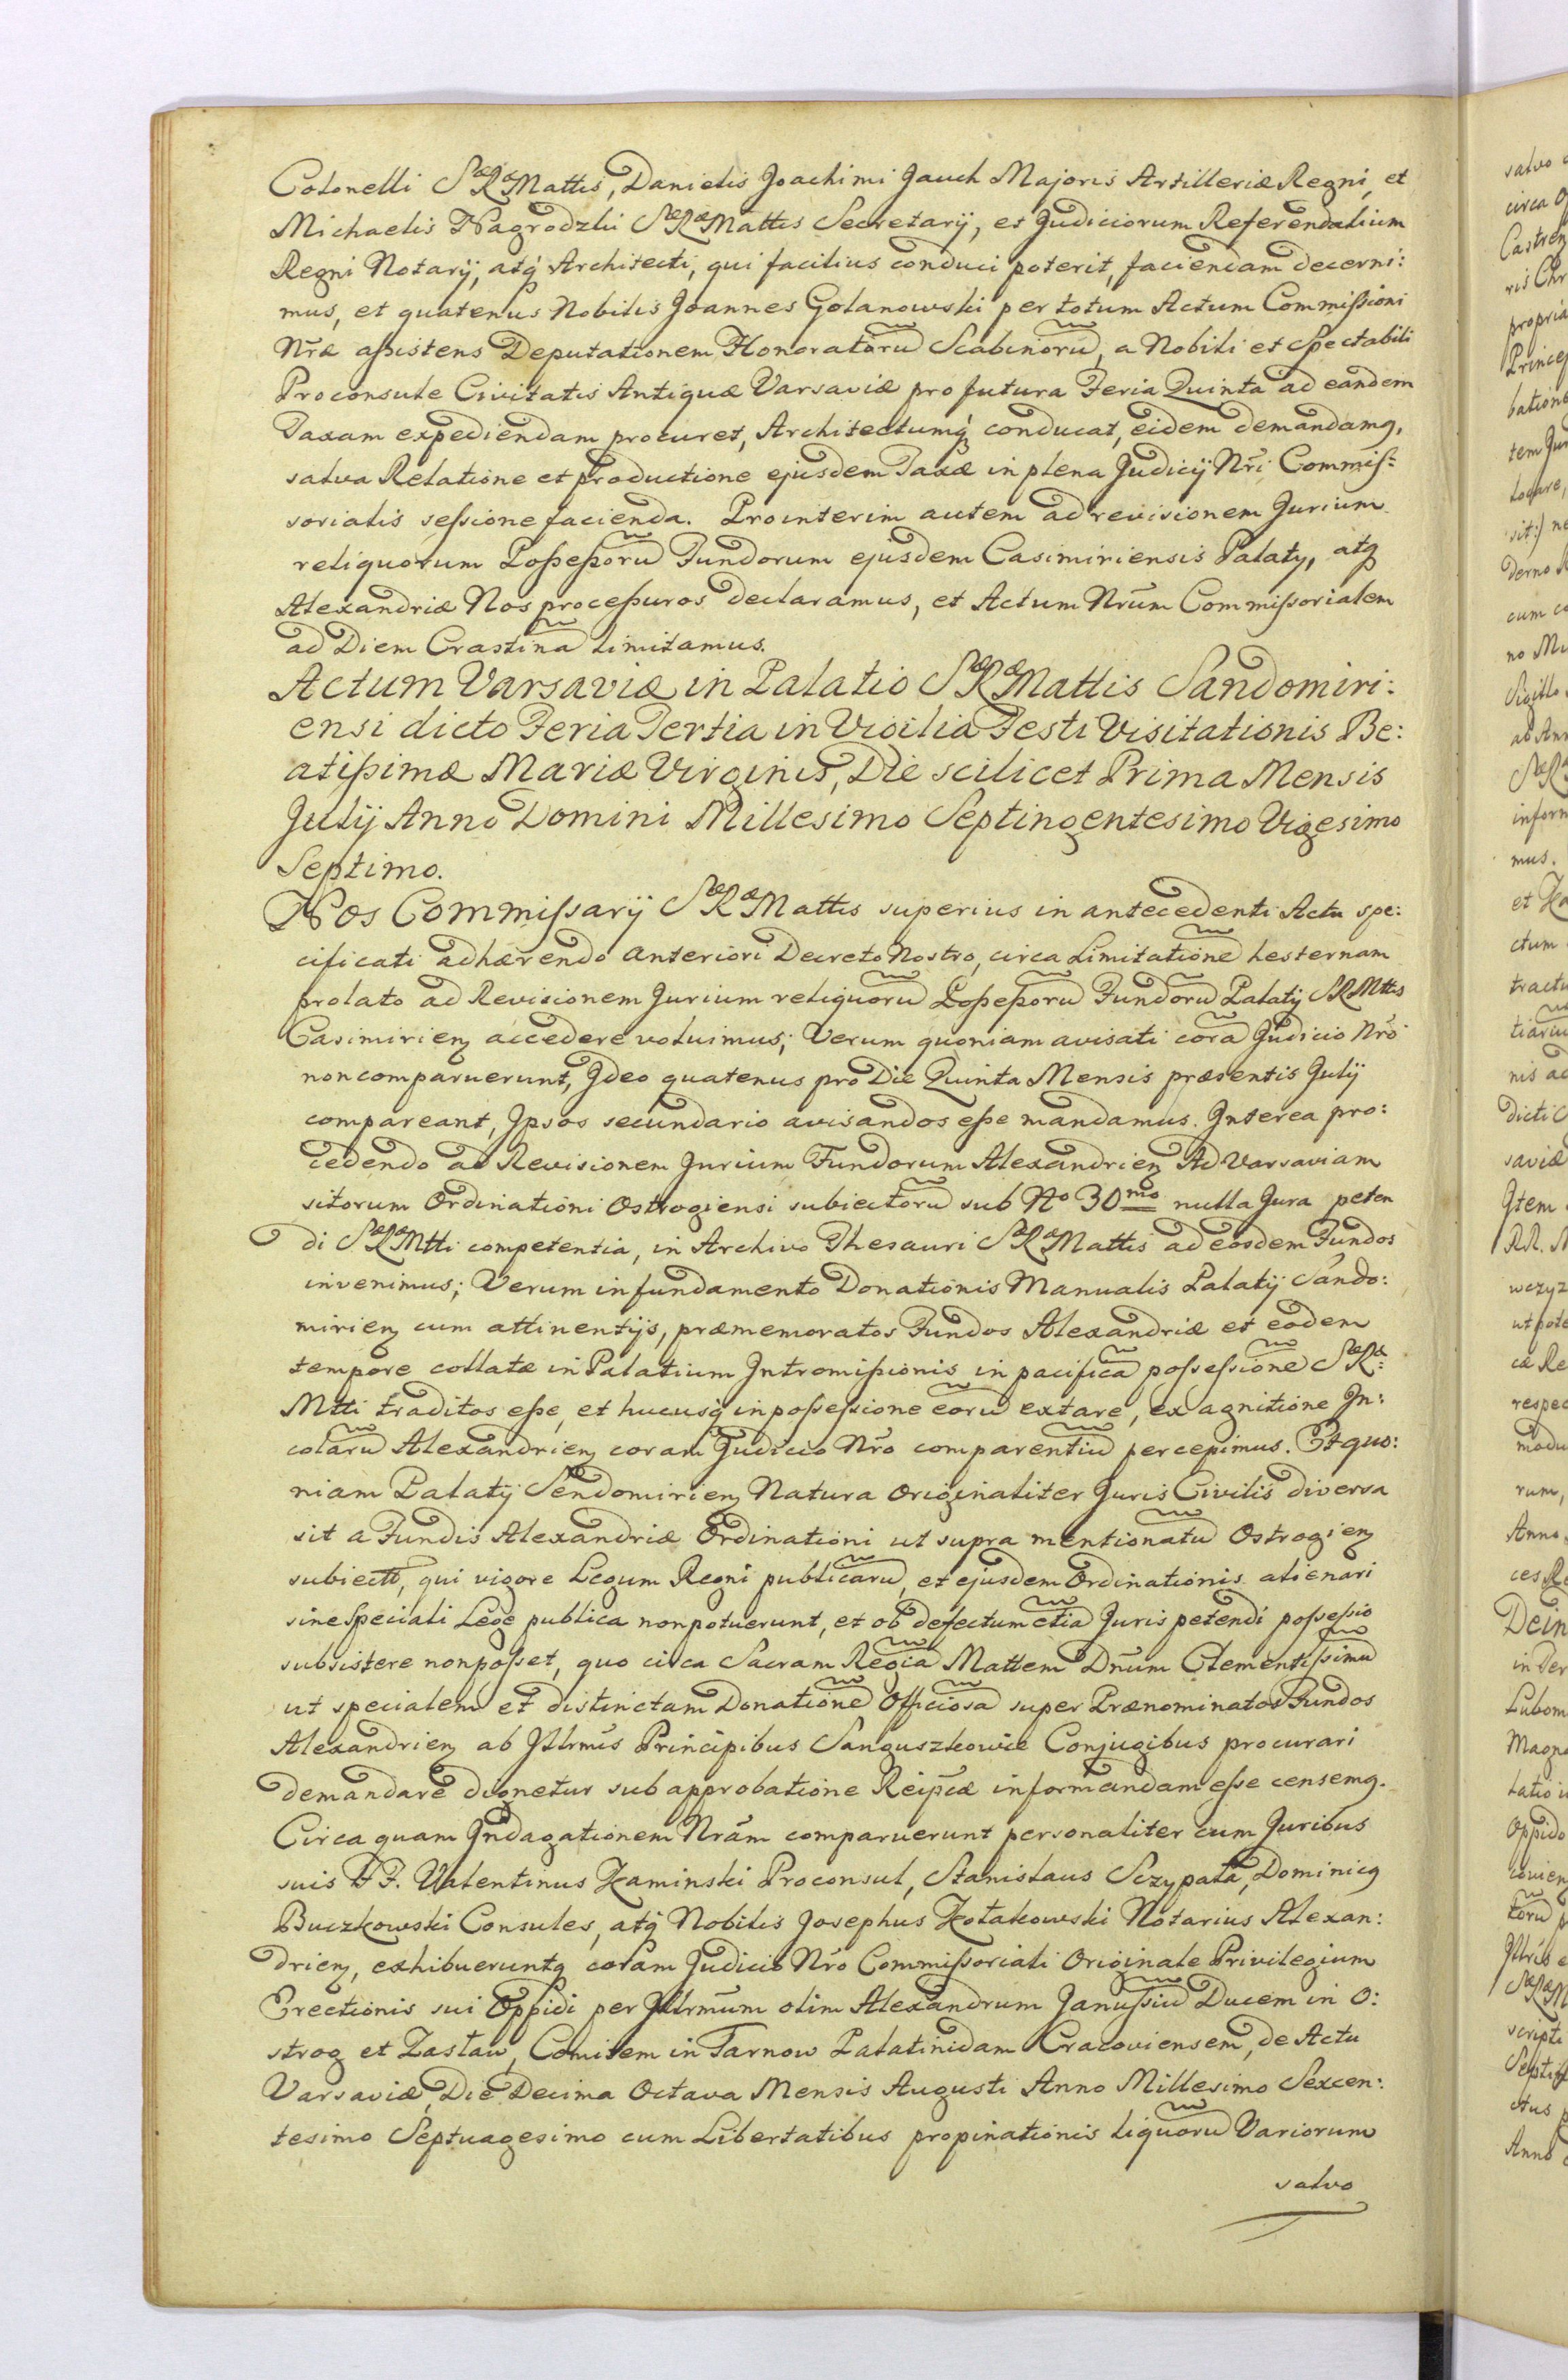 Colonelli SæRæMattis, Danielis Joachimi Jauch Majoris Artilleriæ Regni, et
Michaelis Nagrodzki SæRæMattis Secretarij, et Judiciorum Referendalium
Regni Notarij, atq Architecti, qui facilius conduci poterit, faciendam decerni:
mus, et quatenus Nobilis Joannes Golanowski per totum Actum Commissioni
Nræ assistens Deputationem Honoratorū Scabinorū, a Nobili et Spectabili
Proconsule Civitatis Antiquæ Varsaviæ pro futura Feria Quinta ad eandem
Taxam expediendam procuret, Architectumq conducat, eidem demandamq,
salva Relatione et productione ejusdem Taxæ in plena Judicij Nri Commis=
sorialis sessione facienda. Prointerim autem ad revisionem Jurium
reliquorum Possessorū Fundorum ejusdem Casimiriensis Palatij, atq
Alexandriæ Nos processuros declaramus, et Actum Nrūm Commissorialem
ad Diem Crastinā limitamus.
Actum Varsaviæ in Palatio SæRæMattis Sandomiri:
ensi dicto Feria Tertia in Vigilia Festi Visitationis Be:
atissimæ Mariæ Virginis, Die scilicet Prima Mensis
Julij Anno Domini Millesimo Septingentesimo Vigesimo
Septimo.
Nos Commissarij SæRæMattis superius in antecedenti Actu spe:
cificati adhærendo anteriori Decreto Nostro, circa Limitationē hesternam
prolato ad Revisionem Jurium reliquorū Possessorū Fundorū Palatij SRMttis
Casimirien accedere voluimus; Verum quoniam avisati corā Judicio Nrō
non comparuerunt, Ideo quatenus pro Die Quinta Mensis præsentis Julij
compareant, Ipsos secundario avisandos esse mandamus. Interea pro:
cedendo ad Revisionem Jurium Fundorum Alexandrien Ad Varsaviam
sitorum Ordinationi Ostrogiensi subiectorū sub No 30mo nulla Jura peten
di SæRæMtti competentia, in Archivo Thesauri SæRæMattis ad eosdem Fundos
invenimus; Verum in fundamento Donationis Manualis Palatij Sando:
mirien cum attinentijs, præmemoratos Fundos Alexandriæ et eodem
tempore collatæ in Palatium Intromissionis in pacificā possessionē SæRæ:
Mtti traditos esse, et hucusq in possessione eorū extare, ex agnitione In:
colarū Alexandrien coram Judicio Nrō comparentiū percepimus. Et quo:
niam Palatij Sendomirien Natura originaliter Juris Civilis diversa
sit a Fundis Alexandriæ Ordinationi ut supra mentionatū Ostrogien
subiecti, qui vigore Legum Regni publicarū, et ejusdem Ordinationis alienari
sine speciali Lege publica non potuerunt, et ob defectum etiā Juris petendi possessio
subsistere non posset, quo circa Sacram Regiā Mattem Dnūm Clementissimū
ut specialem et distinctam Donationē Officiosā super Prænominatos Fundos
Alexandrien ab Illrmis Principibus Sanguszkowie Conjugibus procurari
demandare dignetur sub approbatione Reipcæ informandam esse censemq.
Circa quam Indagationem Nrām comparuerunt personaliter cum Juribus
suis FF. Valentinus Kaminski Proconsul, Stanislaus Sczypała, Dominicq
Buczkowski Consules, atq Nobilis Josephus Kołakowski Notarius Alexan:
drien, exhibueruntq coram Judicio Nrō Commissoriali Originale Privilegium
Erectionis sui Oppidi per Illrmūm olim Alexandrum Janussiū Ducem in O:
strog et Zasław, Comitem in Tarnow Palatinidam Cracoviensem, de Actu
Varsaviæ, Die Decima Octava Mensis Augusti Anno Millesimo Sexcen:
tesimo Septuagesimo cum Libertatibus propinationis liquorū Variorum
salvo